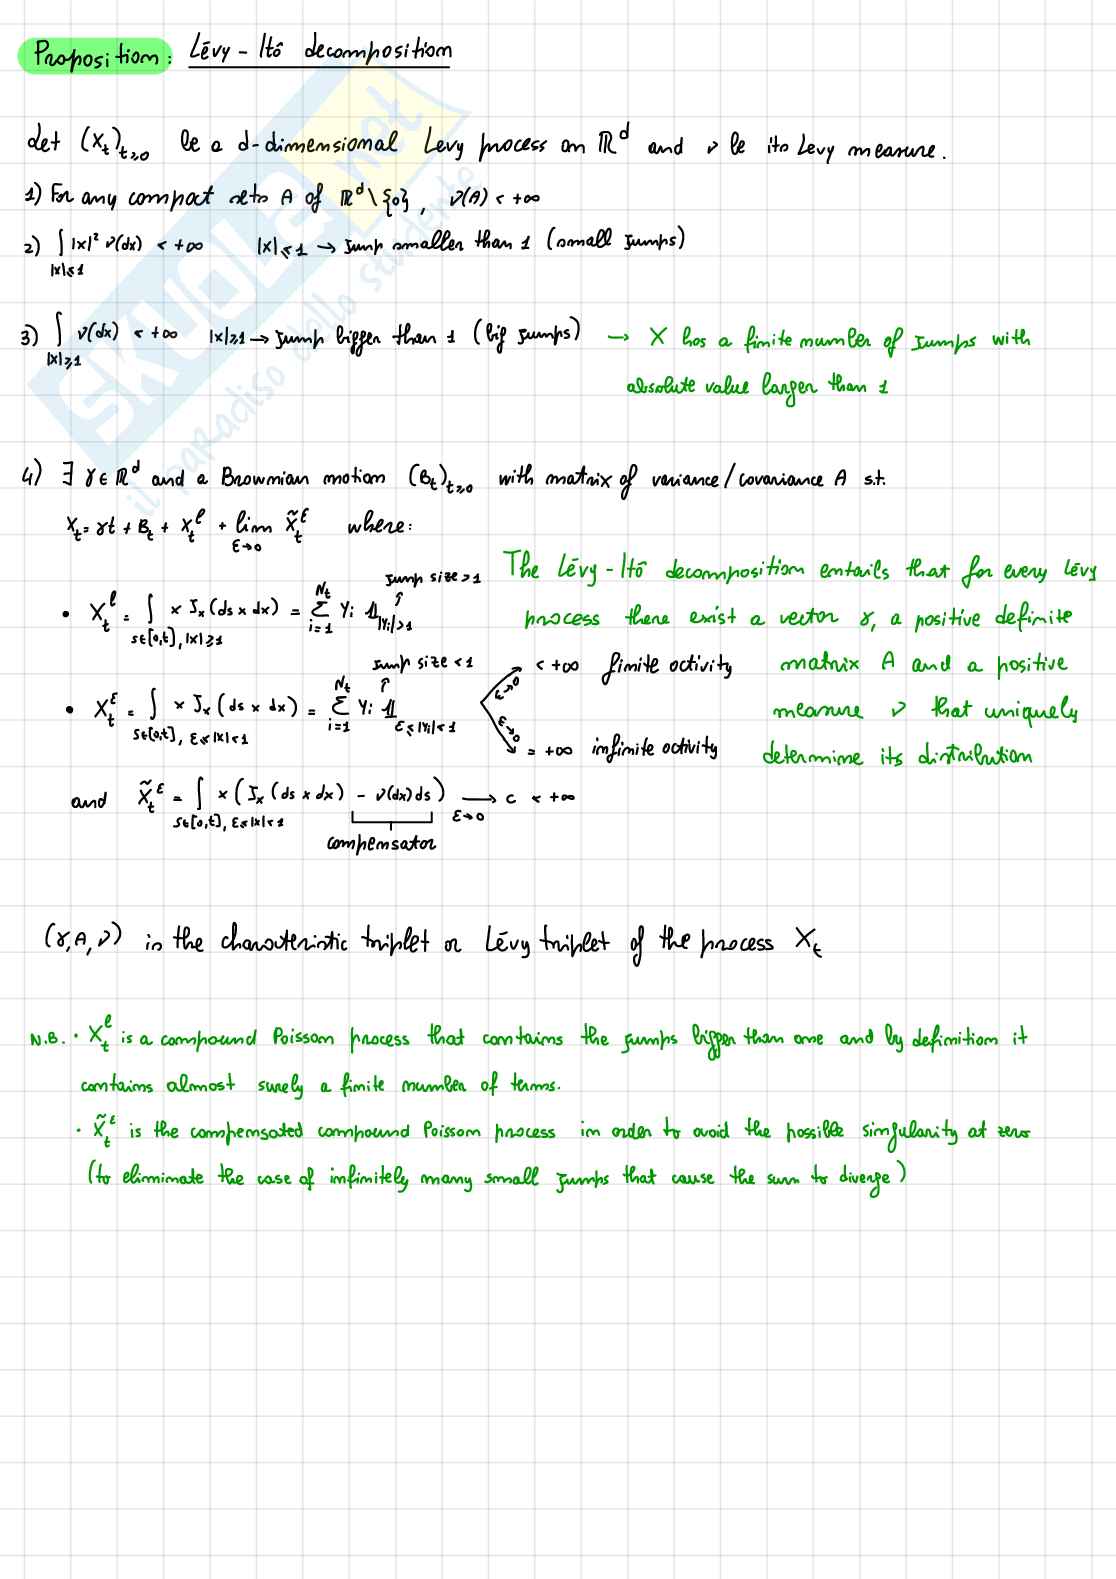 Proposition: Lēvy-Itô decomposition
Let (X_t)_{t≥0} be a d-dimensional Levy process on ℝ^d and ν be its Levy measure.
1) For any compact sets A of ℝ^d\{0}, ν(A) < +∞
2) ∫_{|x|≤1} |x|² ν(dx) < +∞ |x|≤1 → Jump smaller than 1 (small jumps)
3) ∫_{|x|≥1} ν(dx) < +∞ |x|≥1 → Jump bigger than 1 (big jumps) → X has a finite number of jumps with
absolute value larger than 1
4) ∃ γ∈ℝ^d and a Brownian motion (B_t)_{t≥0} with matrix of variance/covariance A s.t.
X_t = γt + B_t + X_t^l + lim_{ε→0} X̃_t^ε where:
• X_t^l = ∫_{s∈[0,t],|x|≥1} x J_x(ds x dx) = Σ_{i=1}^{N_t} Y_i 𝟙_{|Y_i|>1} ↑ Jump size >1
• X_t^ε = ∫_{s∈[0,t], ε≤|x|<1} x J_x(ds x dx) = Σ_{i=1}^{N_t} Y_i 𝟙_{ε≤|Y_i|<1} ↑ Jump size <1
ε→0 < +∞ finite activity
ε→0 = +∞ infinite activity
and X̃_t^ε = ∫_{s∈[0,t], ε≤|x|<1} x (J_x(ds x dx) - ν(dx)ds) →_{ε→0} c < +∞
compensator
The Lēvy-Itô decomposition entails that for every Lēvy
process there exist a vector γ, a positive definite
matrix A and a positive
measure ν that uniquely
determine its distribution
(γ,A,ν) is the characteristic triplet or Lēvy triplet of the process X_t
N.B. · X_t^l is a compound Poisson process that contains the jumps bigger than one and by definition it
contains almost surely a finite number of terms.
· X̃_t^ε is the compensated compound Poisson process in order to avoid the possible singularity at zero
(to elimimate the case of infinitely many small jumps that cause the sum to diverge)
SKUOLA.net
il paradiso dello studente